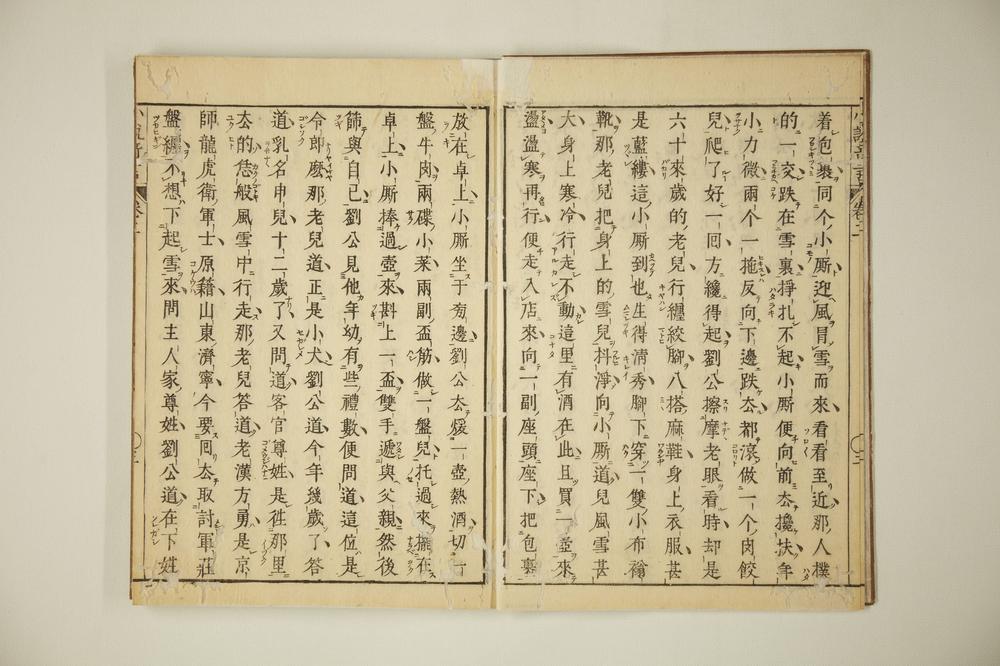 着包裹同个小厮迎風冒雪而來看看至近那人樸
的一交跌在雪裏掙扎不起小厮便向前去攙扶年
小力微兩个一拖反向下邊跌去都滾做一个肉餃
兒爬了好一囘方纔得起劉公擦摩老眼看時却是
六十來歲的老兒行纏絞脚八搭麻鞋身上衣服甚
是藍縷這小厮到也生得清秀脚下穿一雙小布䙆
靴那老兒把身上的雪兒抖淨向小厮道兒風雪甚
大身上寒冷行走不動這里有酒在此且買一壺來
盪盪寒再行便走入店來向一副座頭座下把包裹
放在卓上小厮坐于旁邊劉公去煖一壺熱酒切一
盤牛肉兩碟小菜兩副盃筯做一盤兒托過來擺在
卓上小厮捧過壺來斟上一盃雙手遞與父親然後
篩與自己劉公見他年幼有些禮數便問道這位是
令郎麽那老兒道正是小犬劉公道今年幾歲了答
道乳名申兒十二歲了又問道客官尊姓是徃那里
去的恁般風雪中行走那老兒答道老漢方勇是京
師龍虎衛軍士原籍山東濟寧今要囘去取討軍莊
盤纏不想下起雪來問主人家尊姓劉公道在下姓